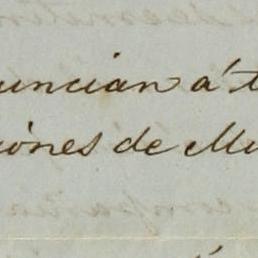 uncian á t
iónes de Mu